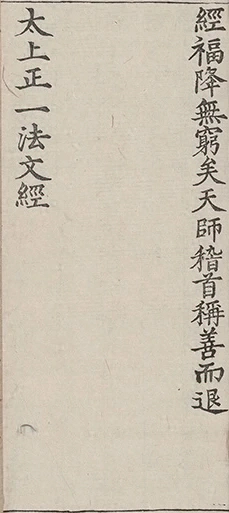 經福降無窮矣天師稽首稱善而退
太上正一法文經